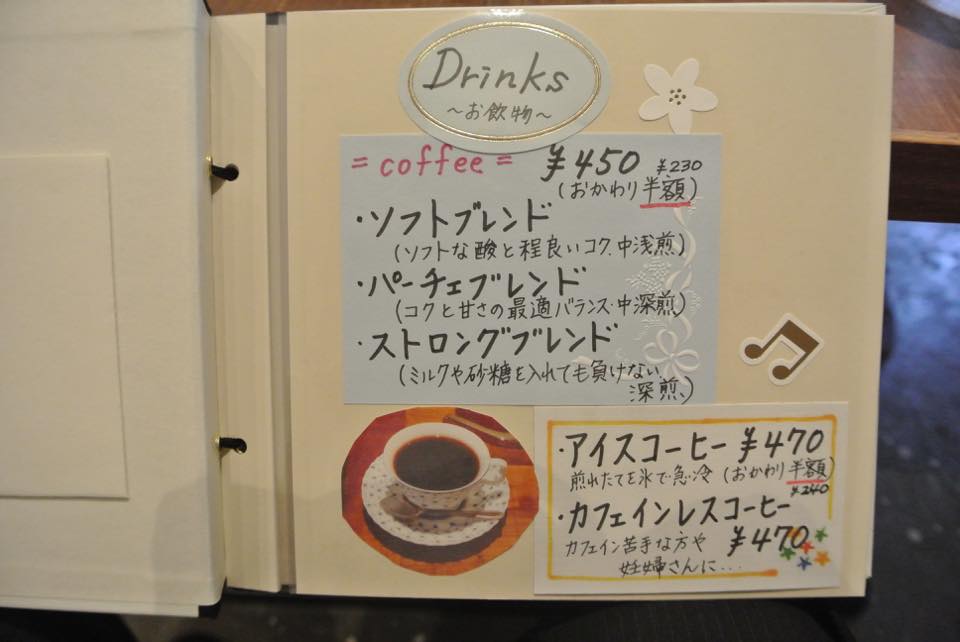 Drinks
～お飲物～
= coffee = ¥450 ¥230
(おかわり半額)
・ソフトブレンド
(ソフトな酸と程良いコク、中浅煎)
・パーチェブレンド
(コクと甘さの最適バランス・中深煎)
・ストロングブレンド
(ミルクや砂糖を入れても負けない、
深煎、)
・アイスコーヒー ¥470
煎れたてを氷で急冷 (おかわり半額)
¥240
・カフェインレスコーヒー
カフェイン苦手な方や ¥470
妊婦さんに...